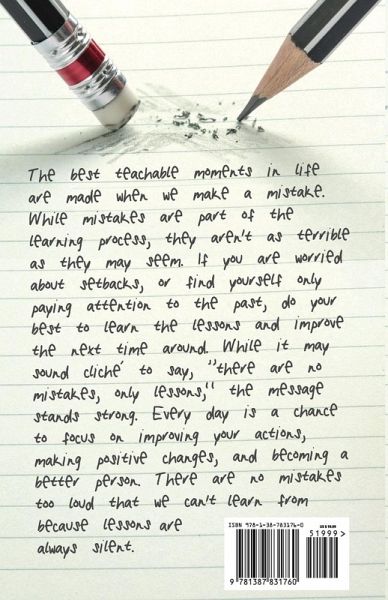 The best teachable moments in life
are made when we make a mistake.
While mistakes are part of the
learning process, they aren't as terrible
as they may seem. If you are worried
about setbacks, or find yourself only
paying attention to the past, do your
best to learn the lessons and improve
the next time around. While it may
sound cliché to say, "there are no
mistakes, only lessons," the message
stands strong. Every day is a chance
to focus on improving your actions,
making positive changes, and becoming a
better person. There are no mistakes
too loud that we can't learn from
because lessons are
always silent.
ISBN 978-1-38-783176-0
51999>
9 781387 831760